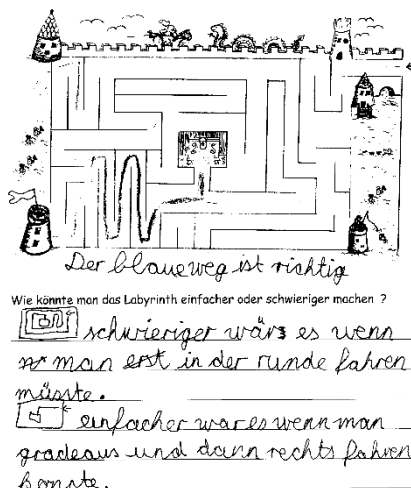 Der blaue weg ist richtig
Wie könnte man das Labyrinth einfacher oder schwieriger machen ?
schwieriger wärs es wenn
man erst in der runde fahren
müsste.
einfacher wares wenn man
gradeaus und dann rechts fahren
konnte.